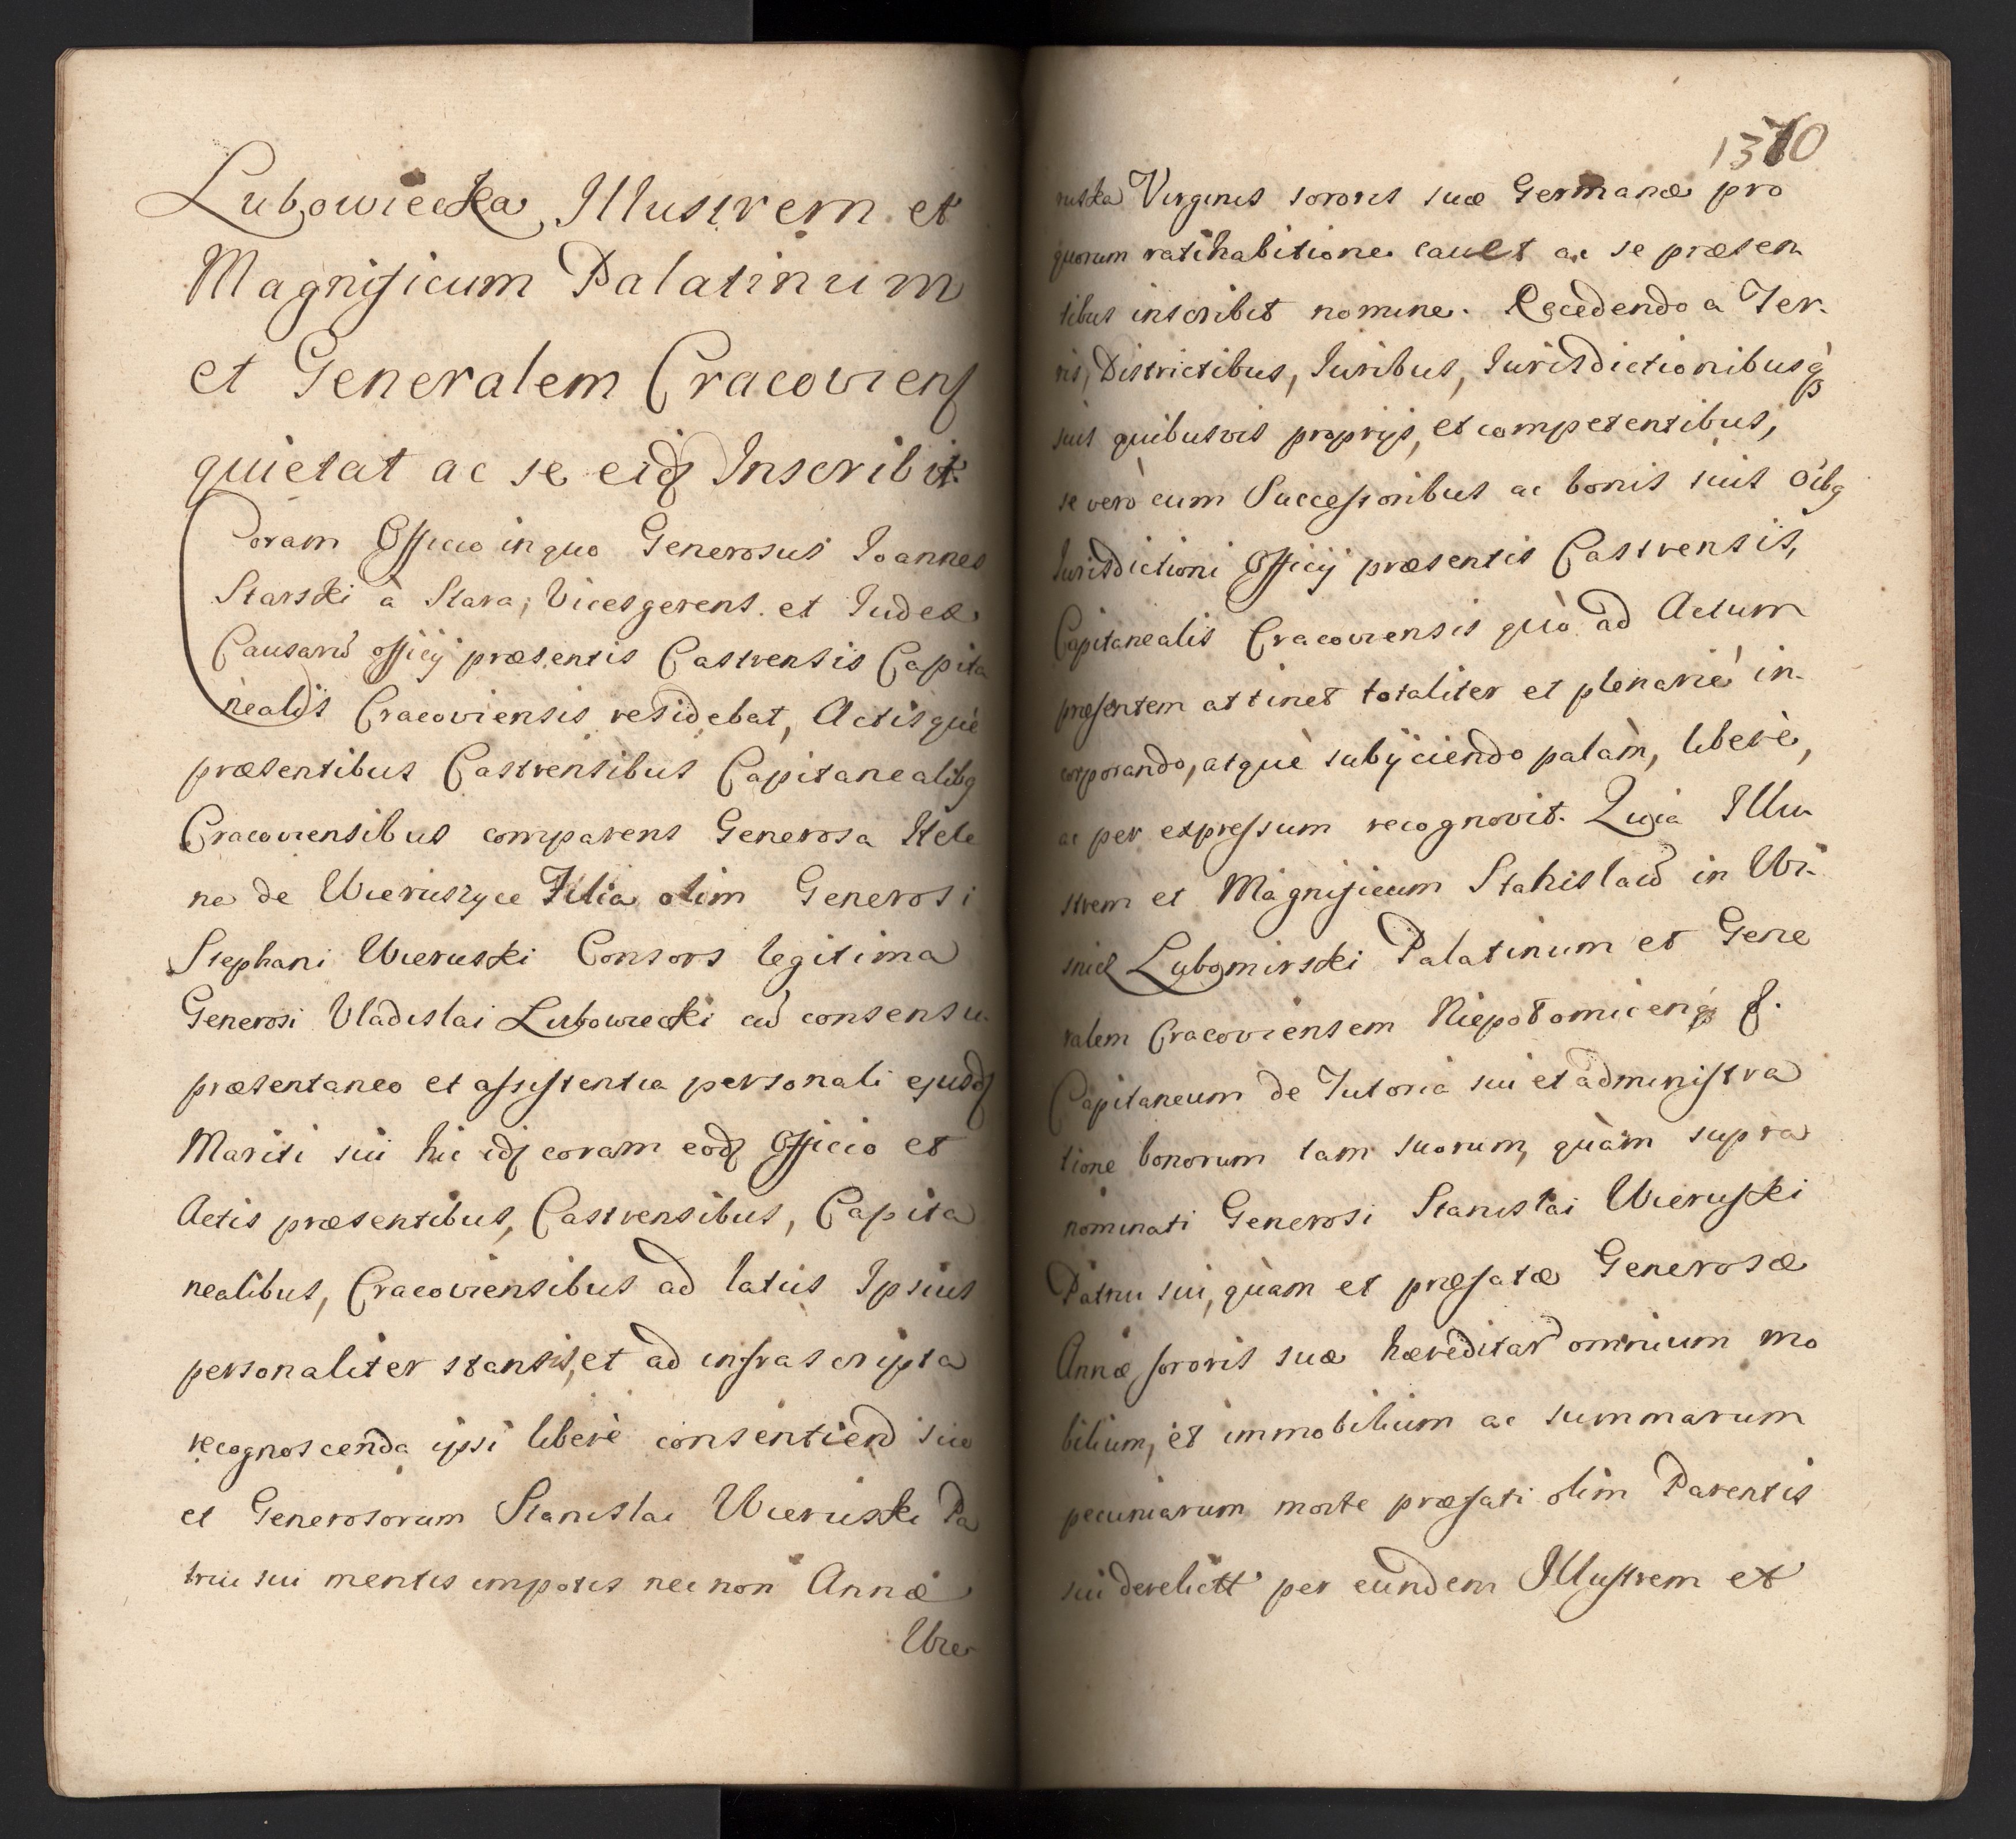 Lubowiecka Illustrem et
Magnificum Palatinum
et Generalem Cracovienſ
quietat ac se eidꝫ Inscribit
Coram Officio in quo Generosus Ioannes
Starski à Stara, Vicesgerens et Iudex
Causarū officij præsentis Castrensis Capita
nealis Cracoviensis residebat, Actisquè
præsentibus Castrensibus Capitanealibꝫ
Cracoviensibus comparens Generosa Hele
na de Wieruszyce Filia olim Generosi
Stephani Wieruski Consors legitima
Generosi Vladislai Lubowiecki cū consensu
præsentaneo et assistentia personali ejusdꝫ
Mariti sui hic idꝫ coram eodꝫ Officio et
Actis præsentibus, Castrensibus, Capita
nealibus, Cracoviensibus ad latus Ipsius
personaliter stantis, et ad infrascripta
recognoscenda ipsi liberè consentiend suo
et Generosorum Stanislai Wieruski Pa
trui sui mentis impotis nec non Annæ
Wie
1370
ruska Virginis sororis suæ Germanæ pro
quorum ratihabitione cavet ac se præsen
tibus inscribit nomine. Recedendo a Ter-
ris, Districtibus, Iuribus, Iurisdictionibusqꝫ
suis quibusvis proprijs, et competentibus,
se verò cum Successoribus ac bonis suis oībꝫ
Iurisdictioni Officij præsentis Castrensis,
Capitanealis Cracoviensis quò ad Actum
præsentem attinet totaliter et plenariè in-
corporando, atquè subijciendo palàm, liberè,
ac per expressum recognovit. Quia Illu-
strem et Magnificum Stanislaū in Wi-
snicz Lubomirski Palatinum et Gene
ralem Cracoviensem Niepotomicenqꝫ &.
Capitaneum de Tutoria sui et administra
tione bonorum tam suorum, quàm supra
nominati Generosi Stanislai Wieruski
Patrui sui, quàm et præfatæ Generosæ
Annæ sororis suæ hæreditar omnium mo
bilium, et immobilium ac summarum
pecuniarum morte præfati olim Parentis
sui derelictt per eundem Illustrem et